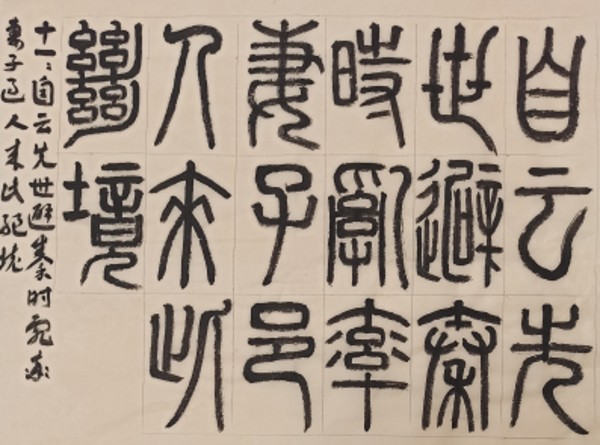 自云先
世避秦
時亂率
妻子邑
人來此
絕境
十一：自云先世避秦时乱率
妻子邑人来此絕境